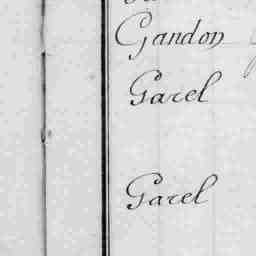 Gandon
Garel
Garel